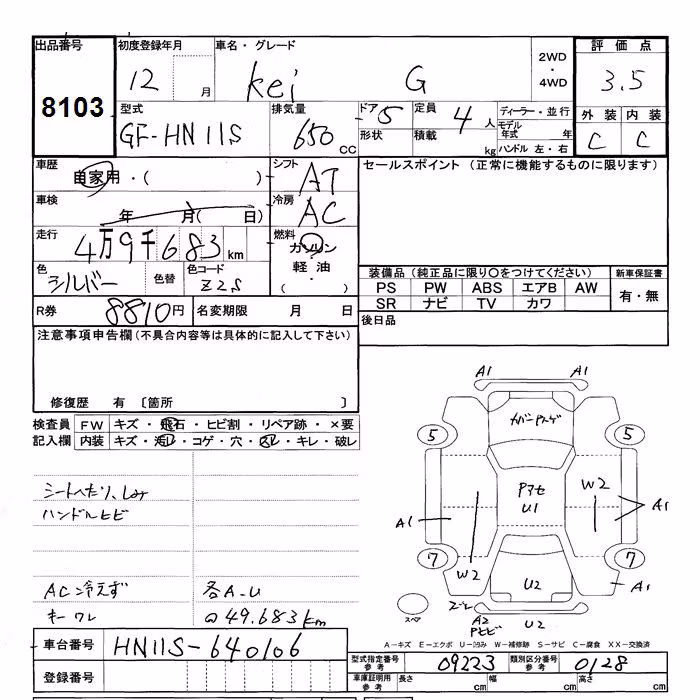 出品番号 初度登録年月 車名・グレード 評価点
8103 12 月 Kei G 2WD・4WD 3.5
型式 排気量 ドア 5 定員 4人 ディーラー・並行 外装 内装
GF-HN11S 650 CC 形状 積載 kg モデル年式 年 C C
ハンドル 左・右
車歴 自家用・( ) シフト AT セールスポイント (正常に機能するものに限ります)
車検 年 月( 日) 冷房 AC
走行 4万9千683km 燃料 ガソリン
軽油
・( )
色 シルバー 色替 色コード Z2S
装備品 (純正品に限り○をつけてください) 新車保証書
PS PW ABS エアB AW 有・無
SR ナビ TV カワ
R券 8810円 名変期限 月 日 後日品
注意事項申告欄 (不具合内容等は具体的に記入して下さい)
修復歴 有 〔箇所 〕
検査員 FW キズ・飛石・ヒビ割・リペア跡・×要
記入欄 内装 キズ・汚レ・コゲ・穴・スレ・キレ・破レ
シートへたり、しみ
ハンドルヒビ
AC冷えず 各A-U
キーワレ 49.683km
A1 A1
5 5
W2
A1 U1 A1
7 7
W2 U2 A1
スペア A2 U2
A-キズ E-エクボ U-凹み W-補修跡 S-サビ C-腐食 XX-交換済
車台番号 HN11S-640106
型式指定番号 参考 09223 類別区分番号 参考 0128
登録番号
車庫証明用 参考 長さ cm 幅 cm 高さ cm